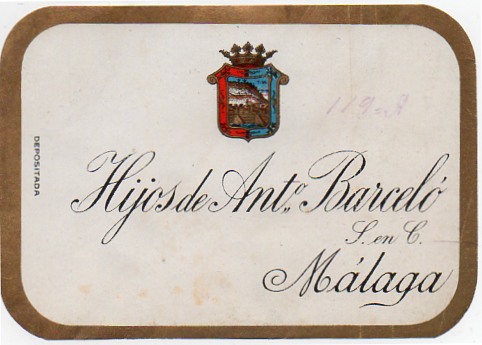 119-A
DEPOSITADA
Hijos de Ant.º Barceló
S. en C.
Málaga